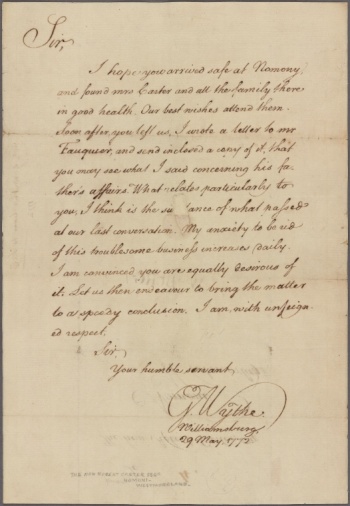 Sir,
I hope you arrived safe at Nomony,
and found mrs Carter and all the family there
in good health. Our best wishes attend them.
Soon after you left us, I wrote a letter to mr
Fauquier, and send inclosed a copy of it, that
you may see what I said concerning his fa-
ther's affairs. What relates particularly to
you, I think is the su ance of what passed
at our last conversation. My anxiety to be rid
of this troublesome business increases daily.
I am convinced you are equally desirous of
it. Let us then endeavour to bring the matter
to a speedy conclusion. I am, with unfeign-
ed respect,
Sir,
Your humble servant
G. Wythe.
Williamsburg
29 May. 1772